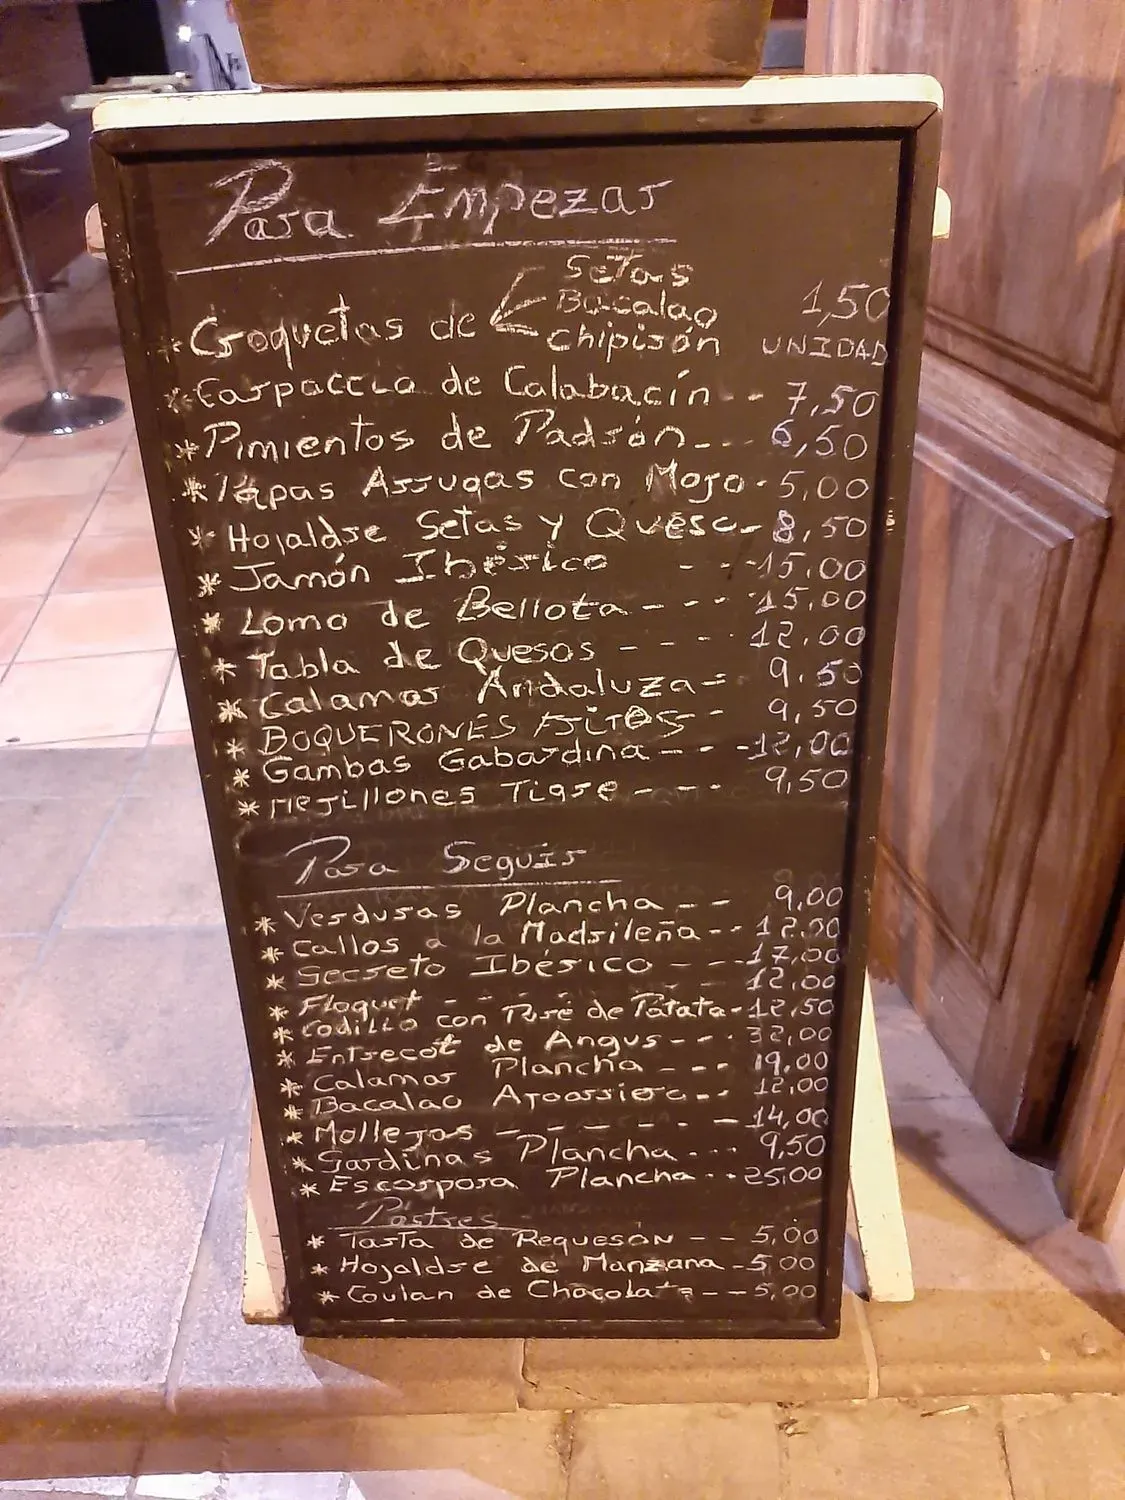 Para Empezar
Setas
Bacalao
Chipirón
* Croquetas de 1,50
UNIDAD
* Carpaccio de Calabacín -- 7,50
* Pimientos de Padrón --- 6,50
* Papas Arrugas con Mojo - 5,00
* Hojaldre Setas y Queso - 8,50
* Jamón Ibérico --- 15,00
* Lomo de Bellota --- 15,00
* Tabla de Quesos --- 12,00
* Calamar Andaluza - 9,50
* BOQUERONES Fritos - 9,50
* Gambas Gabardina --- 12,00
* Mejillones Tigre --- 9,50
Para Seguir
* Verduras Plancha -- 9,00
* Callos a la Madrileña -- 12,50
* Secreto Ibérico --- 17,00
* Floquet --- 12,00
* Codillo con Puré de Patata - 12,50
* Entrecot de Angus --- 32,00
* Calamar Plancha --- 19,00
* Bacalao -- 12,00
* Mollejas ------ 14,00
* Sardinas Plancha --- 9,50
* Escorpora Plancha -- 25,00
Postres
* Tarta de Requesón -- 5,00
* Hojaldre de Manzana - 5,00
* Coulan de Chocolate -- 5,00